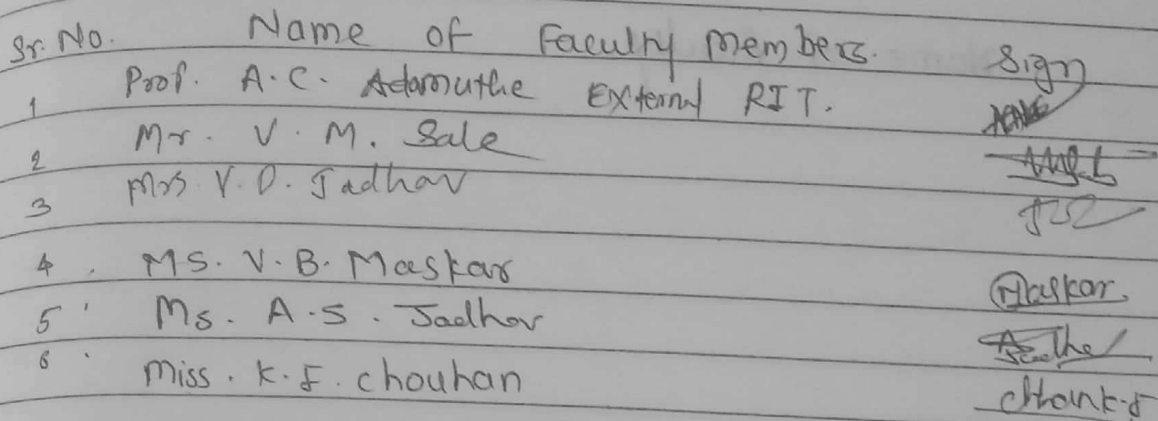 Sr. No. Name of Faculty members. Sign
1 Prof. A.C. Adamuthe External RIT.
2 Mr. V. M. Sale
3 Mrs V.D. Jadhav
4. Ms. V.B. Maskar Maskar
5. Ms. A.S. Jadhav
6. Miss. K.F. Chouhan